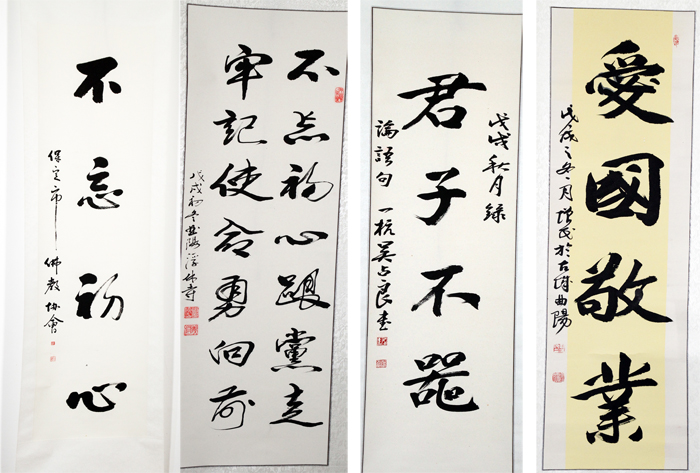 不忘初心
保定市佛教协會
不忘初心跟黨走
牢记使命勇向前
戊戌初冬曲陽淨佛寺
戊戌秋月錄
君子不器
論語句一杭吴占良書
愛國敬業
戊戌之冬月 於古開曲陽